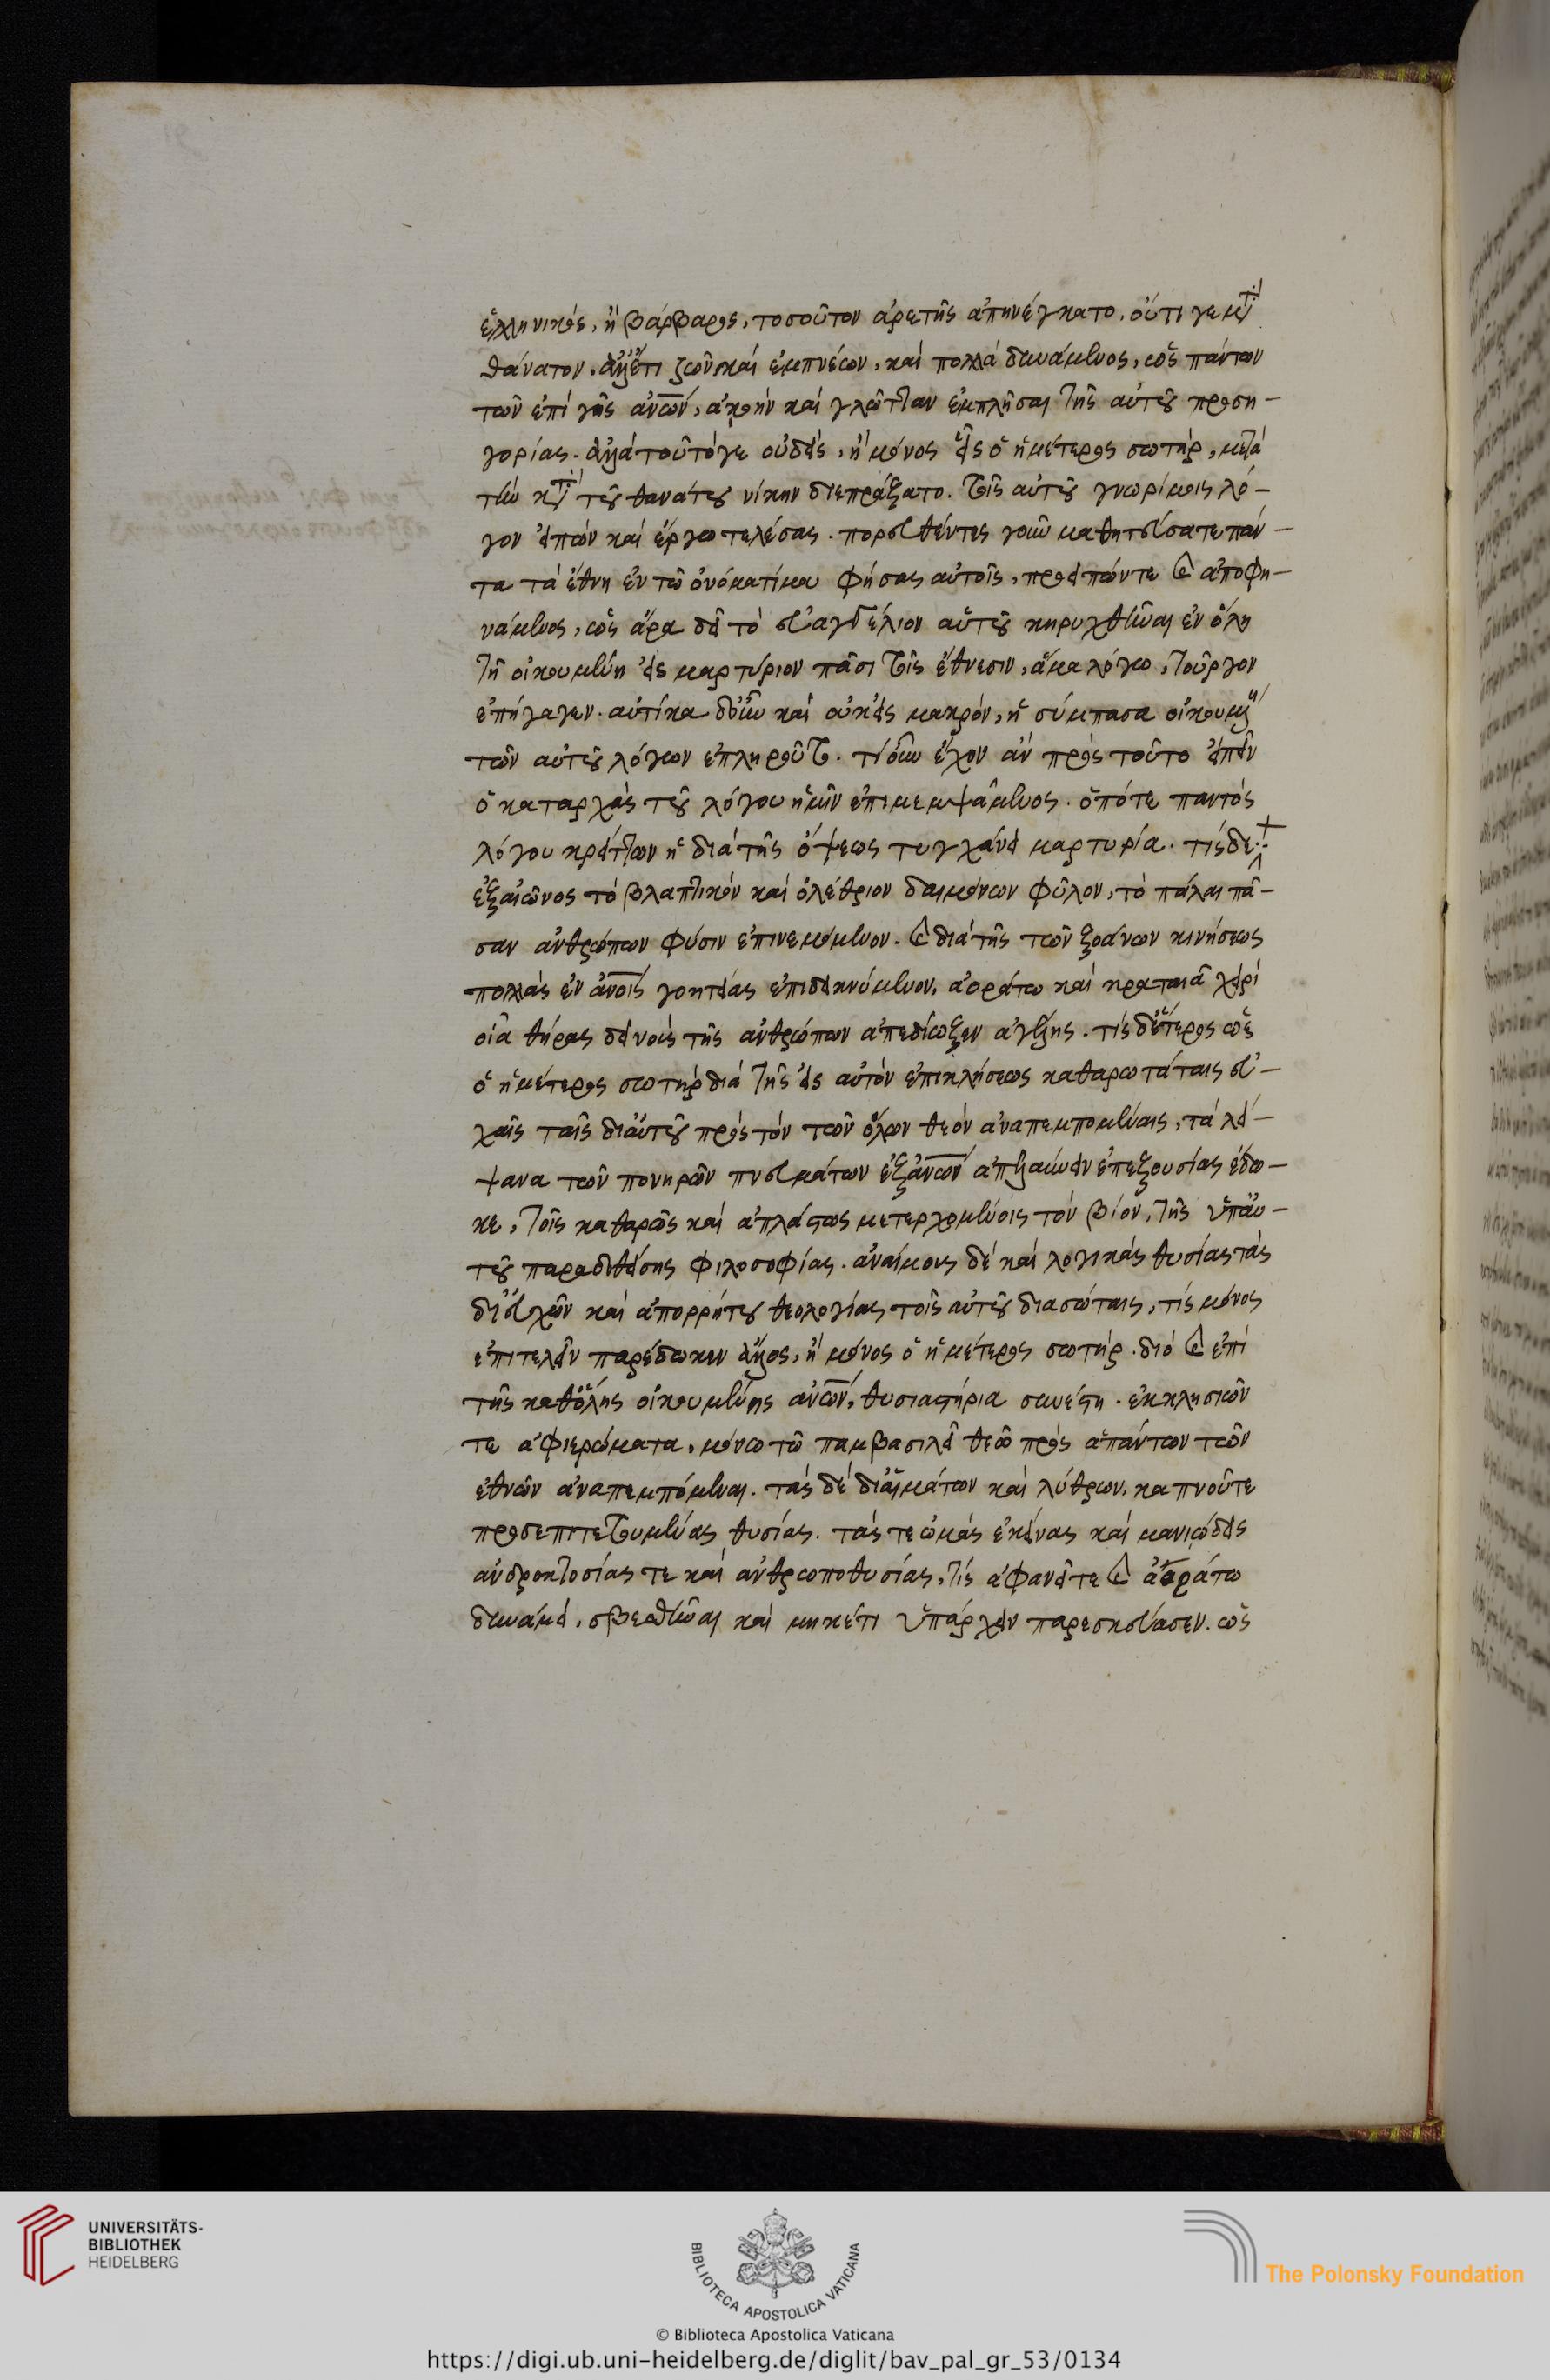 ἑλληνικὸς, ἢ βάρβαρος, τοσοῦτον ἀρετῆς ἀπηνέγκατο. οὔτι γε μετὰ
θάνατον, ἀλλ' ἔτι ζῶν καὶ ἐμπνέων, καὶ πολλὰ δυνάμενος, ὡς πάντων
τῶν ἐπὶ γῆς ἀνων, ἀκοὴν καὶ γλῶτταν ἐμπλῆσαι τῆς αὐτοῦ προση-
γορίας. ἀλλὰ τοῦτό γε οὐδεὶς, ἢ μόνος εἷς ὁ ἡμέτερος σωτὴρ, μετὰ
τὴν κατὰ τοῦ θανάτου νίκην διεπράξατο. τοῖς αὐτοῦ γνωρίμοις λό-
γον εἰπὼν καὶ ἔργω τελέσας. πορευθέντες γοῦν μαθητεύσατε πάν-
τα τὰ ἔθνη ἐν τῶ ὀνόματί μου φήσας αὐτοῖς, προειπών τε καὶ ἀποφη-
νάμενος, ὡς ἄρα δεῖ τὸ εὐαγγέλιον αὐτοῦ κηρυχθῆναι ἐν ὅλη
τῆ οἰκουμένη εἰς μαρτύριον πᾶσι τοῖς ἔθνεσιν, ἅμα λόγω, τοὖργον
ἐπήγαγεν. αὐτίκα δ' οὖν καὶ οὐκ εἰς μακρὸν, ἡ σύμπασα οἰκουμένη
τῶν αὐτοῦ λόγων ἐπληροῦτο. τί οὖν ἔχοι ἂν πρὸς τοῦτο εἰπεῖν
ὁ καταρχὰς τοῦ λόγου ἡμῖν ἐπιμεμψάμενος. ὁπότε παντὸς
λόγου κρείττων ἡ διὰ τῆς ὄψεως τυγχάνει μαρτυρία. τίς δὲ
ἐξ αἰῶνος τὸ βλαπτικὸν καὶ ὀλέθριον δαιμόνων φῦλον, τὸ πάλαι πᾶ-
σαν ἀνθρώπων φύσιν ἐπινεμόμενον. καὶ διὰ τῆς τῶν ξοάνων κινήσεως
πολλὰς ἐν ἀνοις γοητείας ἐπιδεικνύμενον, ἀοράτω καὶ κραταιᾶ χειρὶ
οἷα θήρας δεινοὺς τῆς ἀνθρώπων ἀπεδίωξεν ἀγέλης. τίς δ' ἕτερος ὡς
ὁ ἡμέτερος σωτὴρ διὰ τῆς εἰς αὐτὸν ἐπικλήσεως καθαρωτάταις εὐ-
χαῖς ταῖς δι' αὐτοῦ πρὸς τὸν τῶν ὅλων θεὸν ἀναπεμπομέναις, τὰ λεί-
ψανα τῶν πονηρῶν πνευμάτων ἐξ ἀνων ἀπελαύνειν ἐπ' ἐξουσίας ἔδω-
κε, τοῖς καθαρῶς καὶ ἀπλάστως μετερχομένοις τὸν βίον, τῆς ὑπ' αὐ-
τοῦ παραδοθείσης φιλοσοφίας. ἀναίμους δὲ καὶ λογικὰς θυσίας τὰς
δι' εὐχῶν καὶ ἀπορρήτου θεολογίας τοῖς αὐτοῦ διασώταις, τίς μόνος
ἐπιτελεῖν παρέδωκεν ἄλλος, ἢ μόνος ὁ ἡμέτερος σωτήρ. διὸ καὶ ἐπὶ
τῆς καθόλης οἰκουμένης ἀνων, θυσιαστήρια συνέστη. ἐκκλησιῶν
τε ἀφιερώματα, μόνω τῶ παμβασιλεῖ θεῶ πρὸς ἁπάντων τῶν
ἐθνῶν ἀναπεμπόμεναι. τὰς δὲ δι' αἱμάτων καὶ λύθρων, καπνοῦ τε
προσεπιτετουμένας θυσίας. τάς τε ὠμὰς ἐκείνας καὶ μανιώδεις
ἀνδροκτοσίας τε καὶ ἀνθρωποθυσίας, τίς ἀφανεῖ τε καὶ ἀοράτω
δυνάμει, σβεσθῆναι καὶ μηκέτι ὑπάρχειν παρεσκεύασεν. ὡς
UNIVERSITÄTS-
BIBLIOTHEK
HEIDELBERG
BIBLIOTECA APOSTOLICA VATICANA
© Biblioteca Apostolica Vaticana
The Polonsky Foundation
https://digi.ub.uni-heidelberg.de/diglit/bav_pal_gr_53/0134